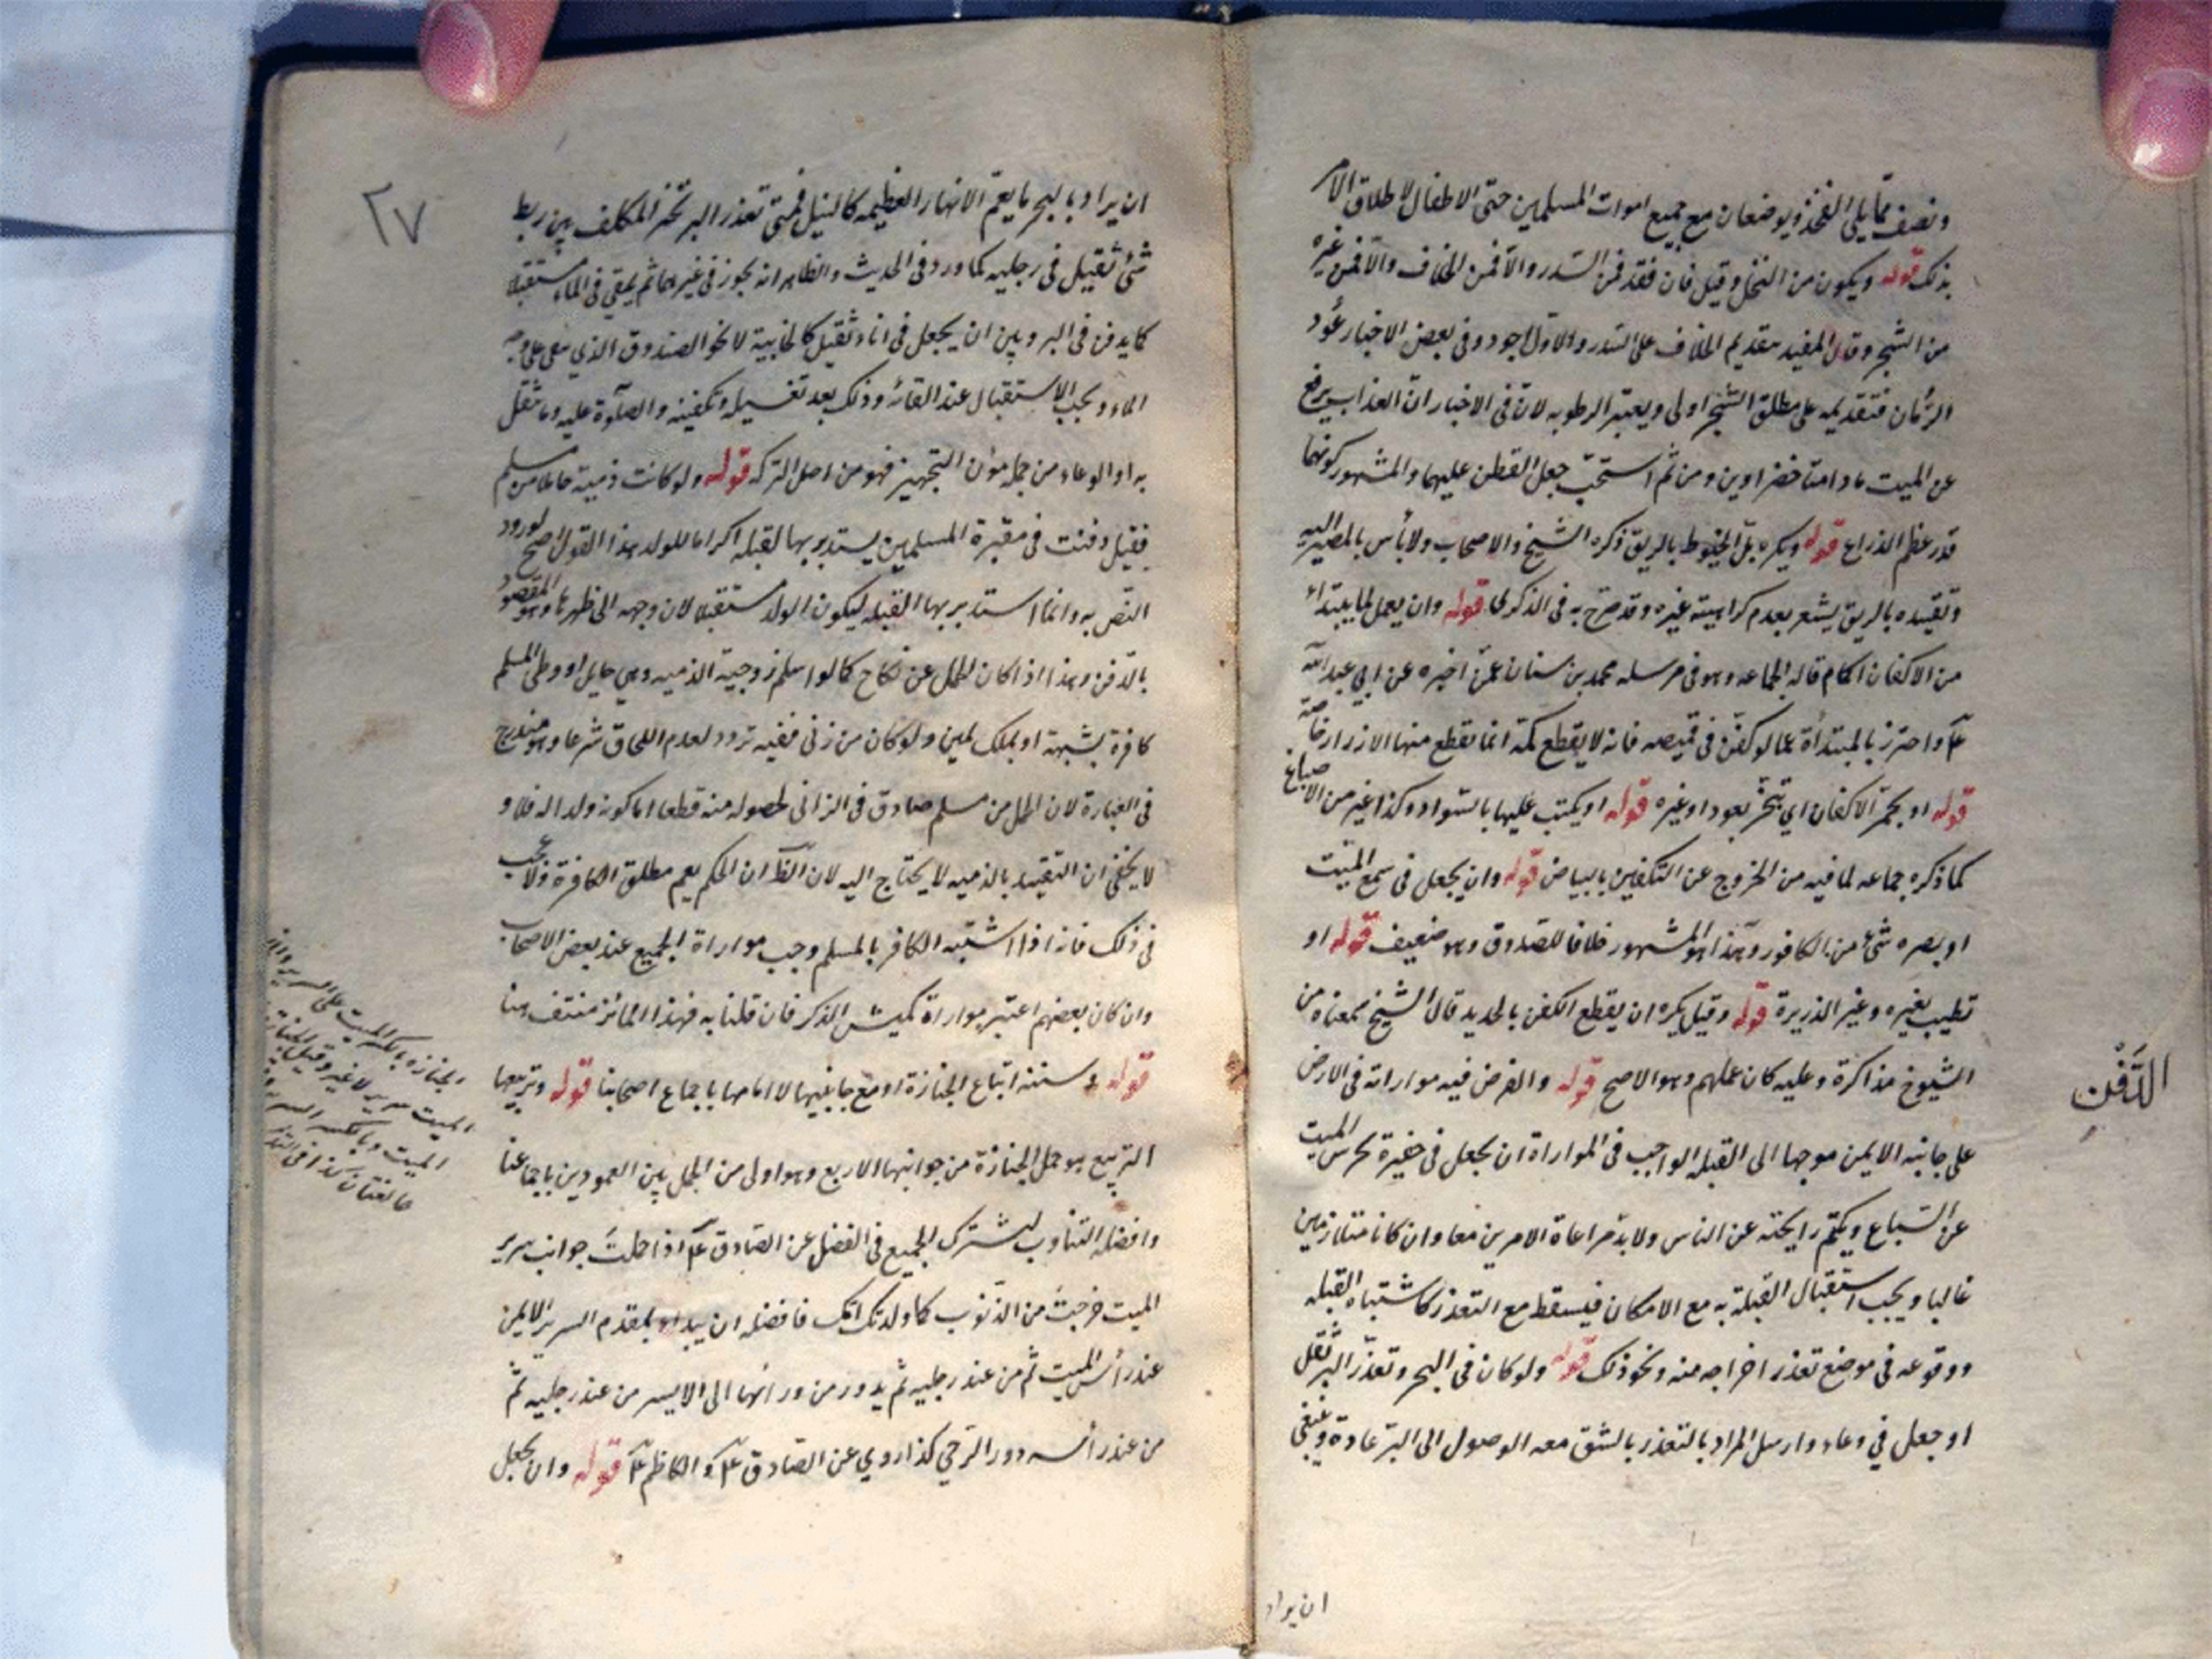 ونصف مما يلي الفخذ ويوضعان مع جميع اموات المسلمين حتى الاطفال لاطلاق الامر
بذلك قوله ويكون من النخل وقيل فان فقد فمن السدر والا فمن الخلاف والا فمن غيره
من الشجر وقال المفيد بتقديم الخلاف على السدر والاول اجود وفي بعض الاخبار عود
الرمان فتقديمه على مطلق الشجر اولى ويعتبر الرطوبه لان في الاخبار ان العذاب يرفع
عن الميت ما دامتا خضراوين ومن ثم استحب جعل القطن عليهما والمشهور كونهما
قدر عظم الذراع قوله ويكره بل الخيوط بالريق ذكره الشيخ والاصحاب ولا بأس بالمصير اليه
وتقييده بالريق يشعر بعدم كراهية غيره وقد صرح به في الذكرى قوله وان يعمل لما يبتداء
من الاكفان اكمام قاله الجماعه وهو في مرسله محمد بن سنان عمن اخبره عن ابي عبد الله
ع واحترز بالمبتدأة عما لو كفن في قميصه فانه لا يقطع كمه انما تقطع منها الازرار خاصة
قوله او يجمر الاكفان اي تبخر بعود او غيره قوله او يكتب عليها بالسواد وكذا غيره من الاصباغ
كما ذكره جماعه لما فيه من الخروج عن التكفين بالبياض قوله وان يجعل في سمع الميت
او بصره شئ من الكافور وهذا هو المشهور خلافا للصدوق وهو ضعيف قوله او
تطيب بغيره وغير الذريرة قوله وقيل يكره ان يقطع الكفن بالحديد قال الشيخ سمعناه من
الشيوخ مذاكرة وعليه كان عملهم وهو الاصح قوله والفرض فيه مواراته في الارض
على جانبه الايمن موجها الى القبلة الواجب في المواراة ان يجعل في حفيرة تحرس الميت
عن السباع ويكتم رايحته عن الناس ولا بد من مراعاة الامرين معا وان كانا متلازمين
غالبا ويجب استقبال القبلة به مع الامكان فيسقط مع التعذر كاشتباه القبله
ووقوعه في موضع تعذر اخراجه منه ونحو ذلك قوله ولو كان في البحر وتعذر البر ثقل
او جعل في وعاء وارسل المراد بالتعذر بالشق معه الوصول الى البر عادة وينبغي
ان يراد
الدفن
٢٧
ان يراد بالبحر ما يعم الانهار العظيمه كالنيل فمتى تعذر البر تخير المكلف بين ربط
شئ ثقيل في رجليه كما ورد في الحديث والظاهر انه يجوز في غيرهما ثم يلقى في الماء مستقبلا
كما يدفن في البر وبين ان يجعل في اناء ثقيل كالخابية لا نحو الصندوق الذي يبقى على وجه
الماء ويجب الاستقبال عند القائه وذلك بعد تغسيله وتكفينه والصلوة عليه وما ثقل
به او الوعاء من جملة مؤن التجهيز فهو من اصل التركه قوله ولو كانت ذمية حاملا من مسلم
فقيل دفنت في مقبرة المسلمين يستدبر بها القبله اكراما للولد هذا القول اصح لورود
النص به وانما استدبر بها القبله ليكون الولد مستقبلا لان وجهه الى ظهرها وهو المقصود
بالدفن وهذا اذا كان الحمل عن نكاح كما لو اسلم زوجية الذميه وهي حامل او وطئ المسلم
كافرة بشبهة او بملك يمين ولو كان من زنى ففيه تردد لعدم اللحاق شرعا وهو مندرج
في العبارة لان الحمل من مسلم صادق في الزاني لحصوله منه قطعا اما كونه ولدا له فلا و
لا يخفى ان التقييد بالذميه لا يحتاج اليه لان الظ ان الحكم يعم مطلق الكافرة ولا عجب
في ذلك فانه اذا اشتبه الكافر بالمسلم وجب مواراة الجميع عند بعض الاصحاب
وان كان بعضهم اعتبر مواراة كميش الذكر فان قلنا به فهذا المائز منتف هنا
قوله وسننه اتباع الجنازة او مع جانبيها لا امامها باجماع اصحابنا قوله وتربيعها
التربيع هو حمل الجنازة من جوانبها الاربع وهو اولى من الحمل بين العمودين باجماعنا
وافضله التناوب ليشترك الجميع في الفضل عن الصادق ع اذا حملت جوانب سرير
الميت خرجت من الذنوب كما ولدتك امك فافضله ان يبداء بمقدم السرير الايمن
عند رأس الميت ثم من عند رجليه ثم يدور من ورائها الى الايسر من عند رجليه ثم
من عند رأسه دور الرحي كذا روي عن الصادق ع والكاظم ع قوله وان يجعل
الجنازه بالكسر الميت على السرير
الميت سرير لا غير وقيل
الميت وبالكسر السرير